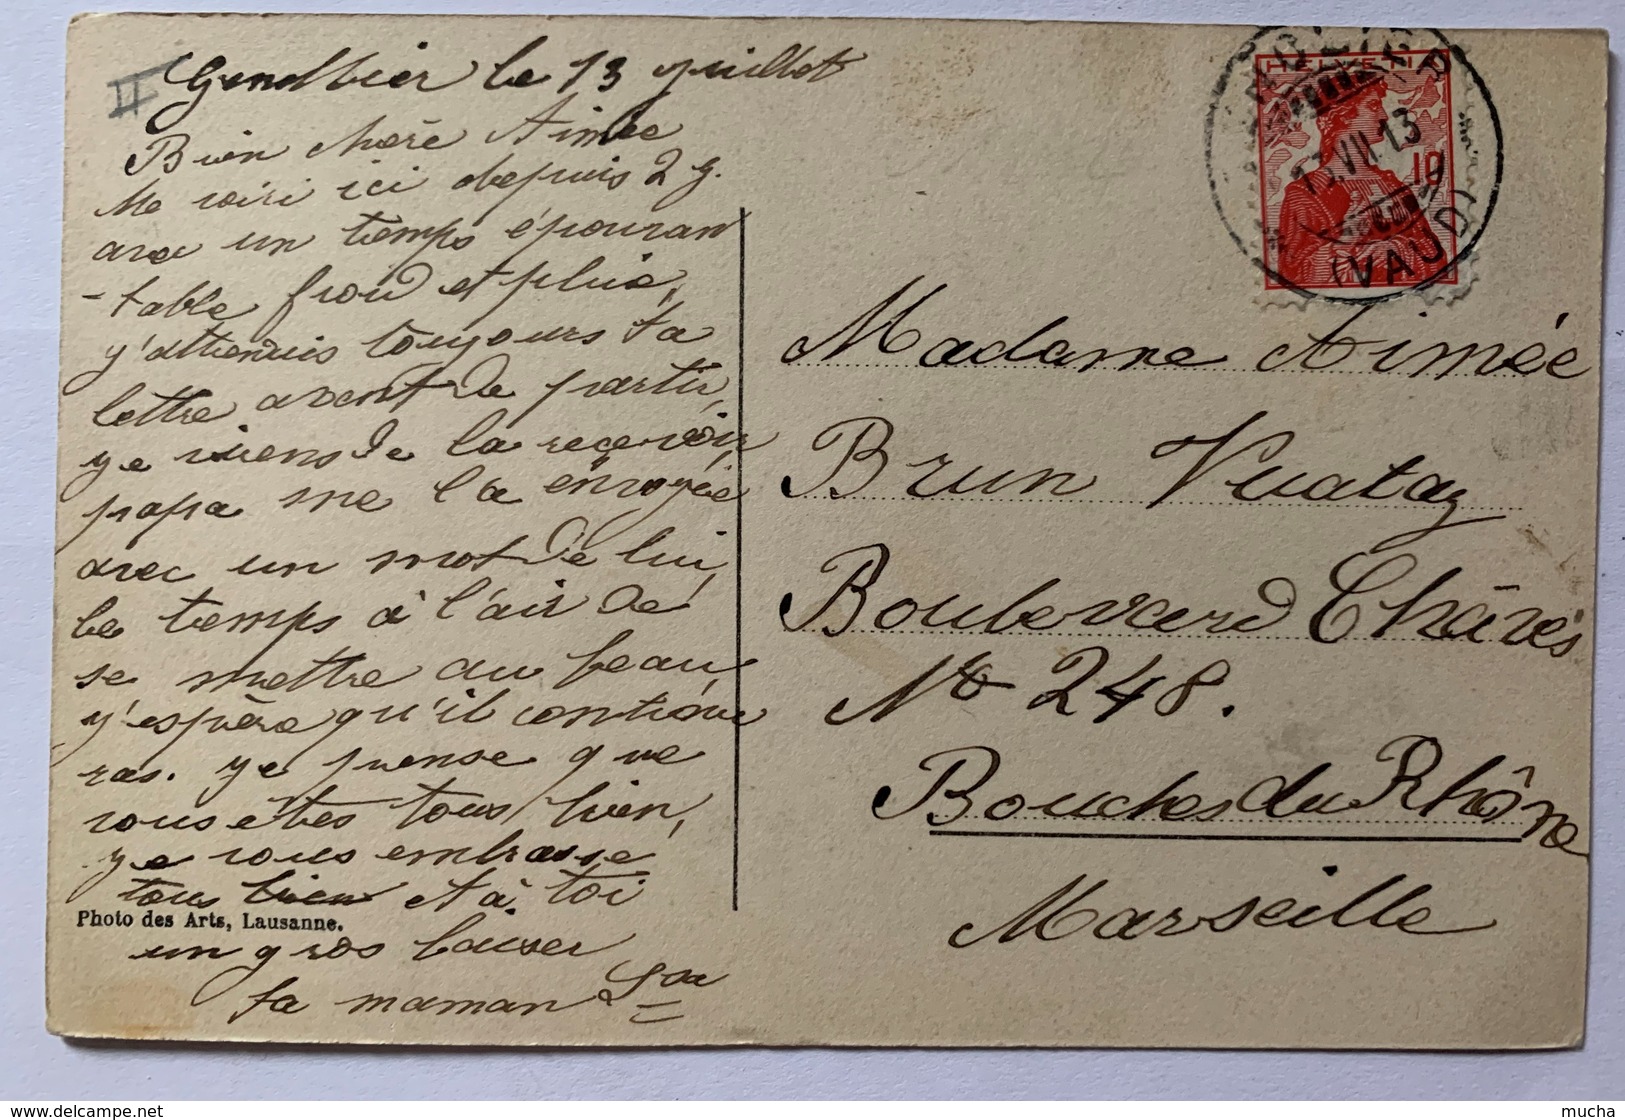 le 13 juillet
Bien chère Aimée
Me voici ici depuis 2 j.
avec un temps épouvan
-table froid et pluie,
j'attendais toujours ta
lettre avant de partir,
je viens de la recevoir,
papa me l'a envoyée
avec un mot de lui,
le temps à l'air de
se mettre au beau,
j'espère qu'il continue
ras. je pense que
vous êtes tous bien,
je vous embrasse
tous bien et à toi
Photo des Arts, Lausanne.
un gros baiser
ta maman
HELVETIA
10
13.VII.13
(VAUD)
Madame Aimée
Brun Vuataz
Boulevard Châves
No 248.
Bouches du Rhône
Marseille
II
mucha
www.delcampe.net